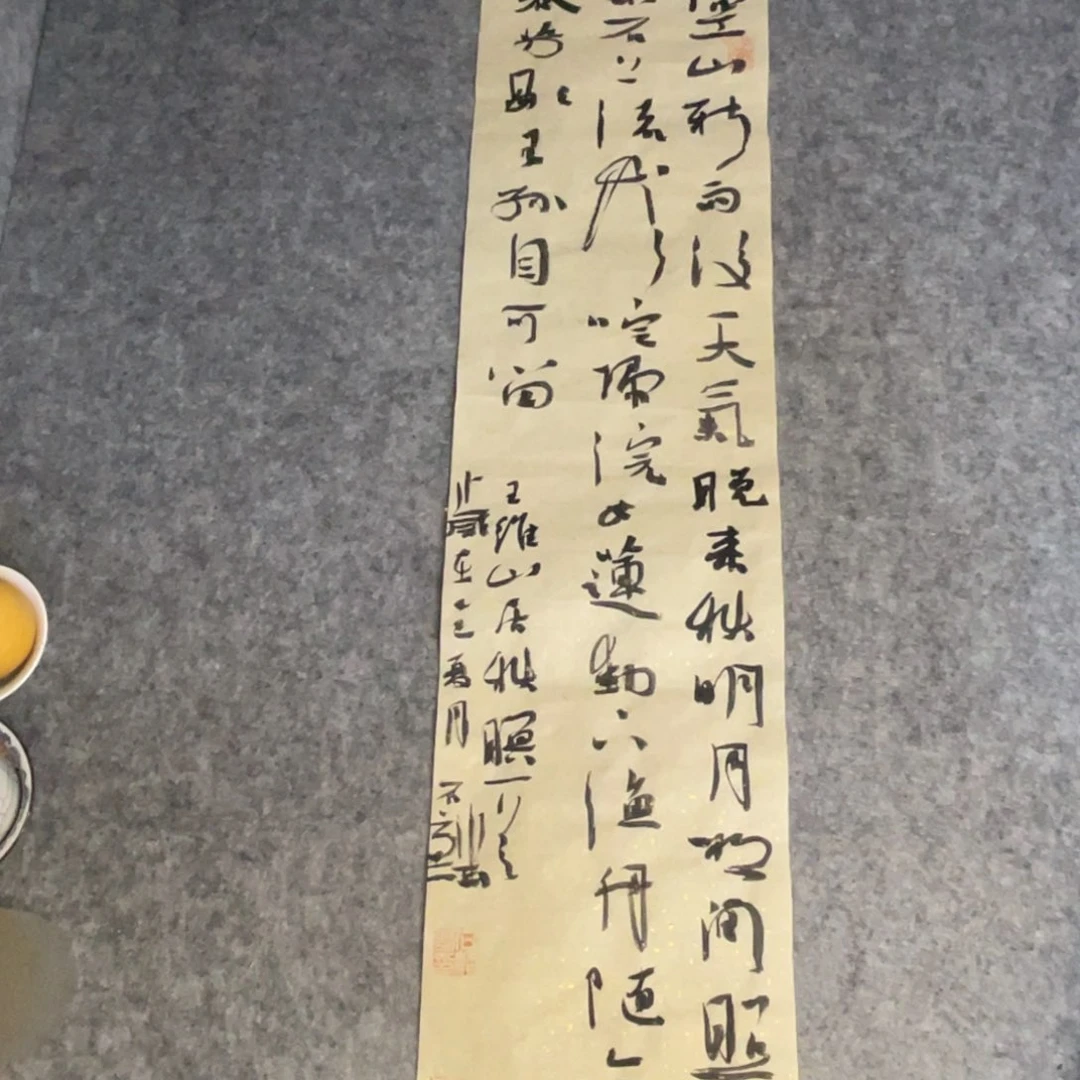 空山新雨後天氣晚来秋明月松间照
石上流竹喧歸浣女蓮動下漁舟随
芳歇王孫自可留
王維山居秋暝一首
歲在夏月